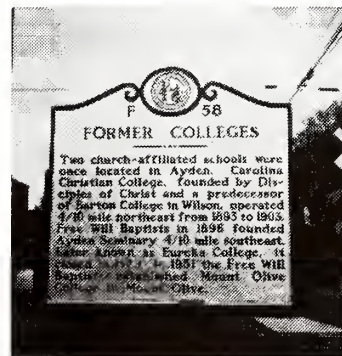 F 58
FORMER COLLEGES
Two church-affiliated schools were
once located in Ayden. Carolina
Christian College, founded by Dis-
ciples of Christ and a predecessor
of Barton College in Wilson, operated
4/10 mile northeast from 1893 to 1903.
Free Will Baptists in 1896 founded
Ayden Seminary 4/10 mile southeast.
Later known as Eureka College, it
closed in 1951 the Free Will
Baptists established Mount Olive
College in Mount Olive.